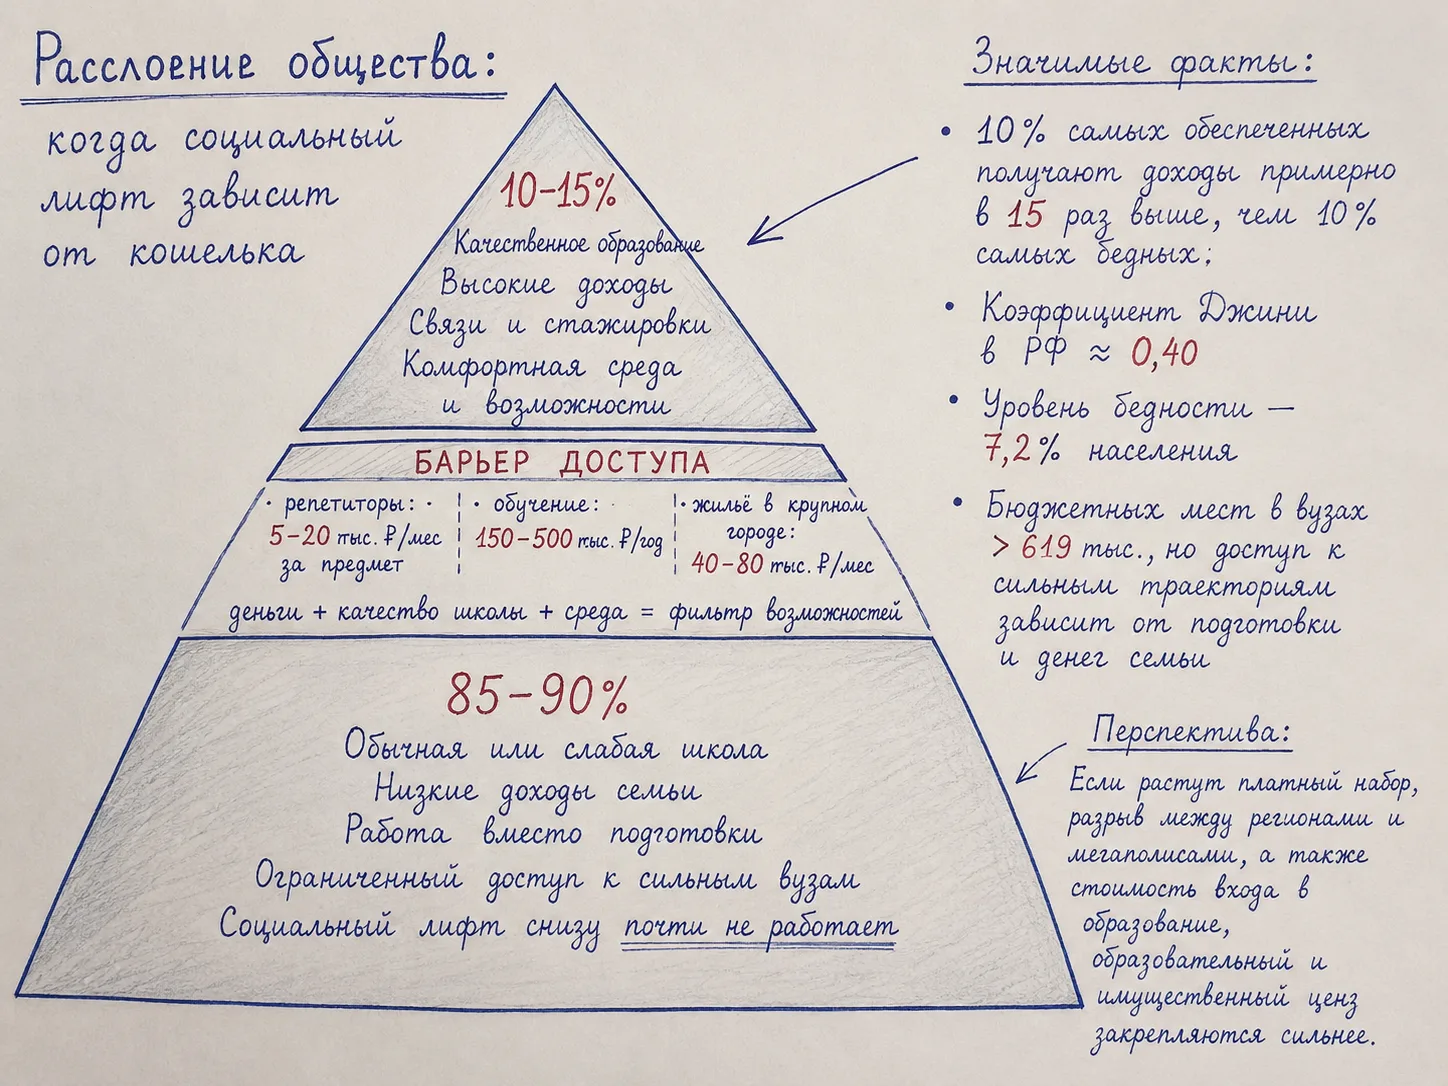 Расслоение общества:
когда социальный
лифт зависит
от кошелька
10-15%
Качественное образование
Высокие доходы
Связи и стажировки
Комфортная среда
и возможности
БАРЬЕР ДОСТУПА
• репетиторы: •
5-20 тыс. ₽/мес
за предмет
• обучение:
150-500 тыс. ₽/год
• жильё в крупном
городе:
40-80 тыс. ₽/мес
деньги + качество школы + среда = фильтр возможностей
85-90%
Обычная или слабая школа
Низкие доходы семьи
Работа вместо подготовки
Ограниченный доступ к сильным вузам
Социальный лифт снизу почти не работает
Значимые факты:
• 10% самых обеспеченных
получают доходы примерно
в 15 раз выше, чем 10%
самых бедных;
• Коэффициент Джини
в РФ ≈ 0,40
• Уровень бедности —
7,2% населения
• Бюджетных мест в вузах
> 619 тыс., но доступ к
сильным траекториям
зависит от подготовки
и денег семьи
Перспектива:
Если растут платный набор,
разрыв между регионами и
мегаполисами, а также
стоимость входа в
образование,
образовательный и
имущественный ценз
закрепляются сильнее.